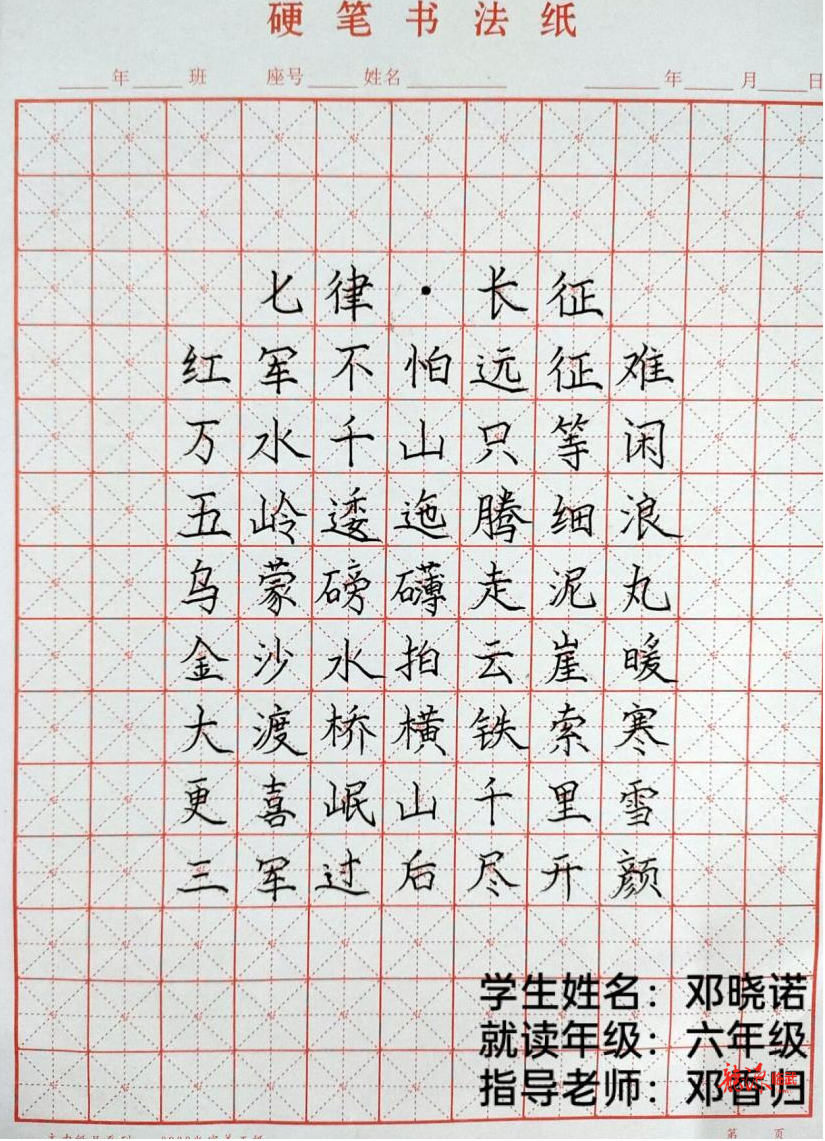 硬笔书法纸
年 班 座号 姓名 年 月 日
七律·长征
红军不怕远征难
万水千山只等闲
五岭逶迤腾细浪
乌蒙磅礴走泥丸
金沙水拍云崖暖
大渡桥横铁索寒
更喜岷山千里雪
三军过后尽开颜
学生姓名：邓晓诺
就读年级：六年级
指导老师：邓香归
第 页